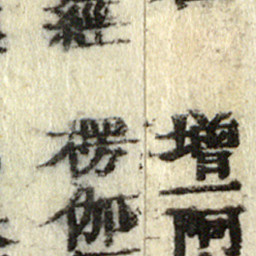 增一阿
經
楞伽